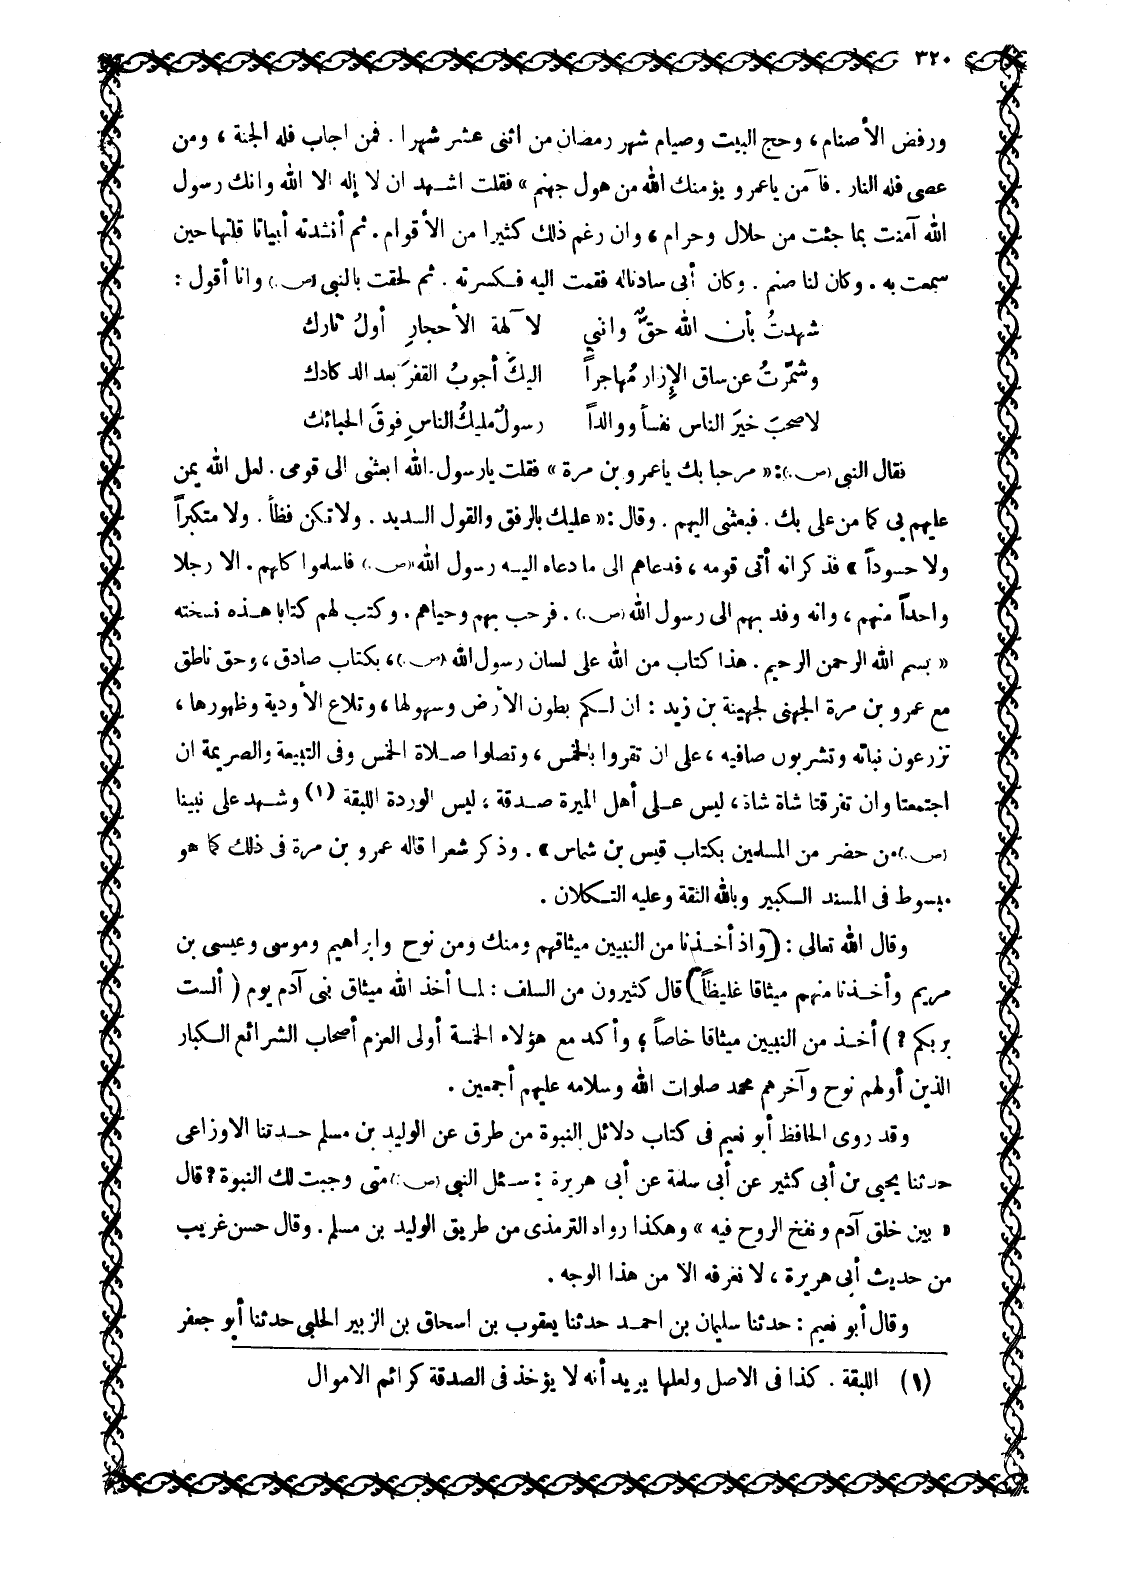 ٣٢٠
ورفض الأصنام، وحج البيت وصيام شهر رمضان من اثنى عشر شهرا. فمن اجاب فله الجنة، ومن
عصى فله النار. فآمن ياعمرو يؤمنك الله من هول جهنم » فقلت اشهد ان لا إله الا الله وانك رسول
الله آمنت بما جئت من حلال وحرام، وان رغم ذلك كثيرا من الأقوام. ثم أنشدته أبياتا قلتها حين
سمعت به. وكان لنا صنم. وكان أبى سادناله فقمت اليه فكسرته. ثم لحقت بالنبى (ص.) وانا أقول:
شهدتُ بأن الله حقٌّ وانني لآلهة الأحجارِ أولُ تارك
وشمّرتُ عن ساق الإزار مُهاجراً اليكَ أجوبُ القفرَ بعد الدكادك
لاصحبَ خيرَ الناس نفساً ووالداً رسولُ مليكُ الناسِ فوقَ الحبائك
فقال النبى (ص.): « مرحبا بك ياعمرو بن مرة » فقلت يارسول الله ابعثنى الى قومى. لعل الله يمن
عليهم بى كما من على بك. فبعثنى اليهم. وقال: « عليك بالرفق والقول السديد. ولا تكن فظاً. ولا متكبراً
ولا حسوداً » فذكر انه أتى قومه، فدعاهم الى ما دعاه اليه رسول الله (ص.) فاسلموا كلهم. الا رجلا
واحداً منهم، وانه وفد بهم الى رسول الله (ص.). فرحب بهم وحياهم. وكتب لهم كتابا هذه نسخته
« بسم الله الرحمن الرحيم. هذا كتاب من الله على لسان رسول الله (ص.)، بكتاب صادق، وحق ناطق
مع عمرو بن مرة الجهنى لجهينة بن زيد: ان لكم بطون الأرض وسهولها، وتلاع الأودية وظهورها،
تزرعون نباته وتشربون صافيه، على ان تقروا بالخمس، وتصلوا صلاة الخمس وفى التبيعة والصريمة ان
اجتمعتا وان تفرقتا شاة شاة، ليس على أهل الميرة صدقة، ليس الوردة اللبقة (١) وشهد على نبينا
(ص.) من حضر من المسلمين بكتاب قيس بن شماس ». وذكر شعرا قاله عمرو بن مرة فى ذلك كما هو
مبسوط فى المسند الكبير وبالله الثقة وعليه التكلان.
وقال الله تعالى: (واذ أخذنا من النبيين ميثاقهم ومنك ومن نوح وابراهيم وموسى وعيسى بن
مريم وأخذنا منهم ميثاقا غليظاً) قال كثيرون من السلف: لما أخذ الله ميثاق بنى آدم يوم ( ألست
بربكم؟ ) أخذ من النبيين ميثاقا خاصاً، وأكد مع هؤلاء الخمسة أولى العزم أصحاب الشرائع الكبار
الذين أولهم نوح وآخرهم محمد صلوات الله وسلامه عليهم أجمعين.
وقد روى الحافظ أبو نعيم فى كتاب دلائل النبوة من طرق عن الوليد بن مسلم حدثنا الاوزاعى
حدثنا يحيى بن أبى كثير عن أبى سلمة عن أبى هريرة: سئل النبى (ص.) متى وجبت لك النبوة؟ قال
« بين خلق آدم ونفخ الروح فيه » وهكذا رواه الترمذى من طريق الوليد بن مسلم. وقال حسن غريب
من حديث أبى هريرة، لا نعرفه الا من هذا الوجه.
وقال أبو نعيم: حدثنا سليمان بن احمد حدثنا يعقوب بن اسحاق بن الزبير الحلبى حدثنا أبو جعفر
(١) اللبقة. كذا فى الاصل ولعلها يريد أنه لا يؤخذ فى الصدقة كرائم الاموال